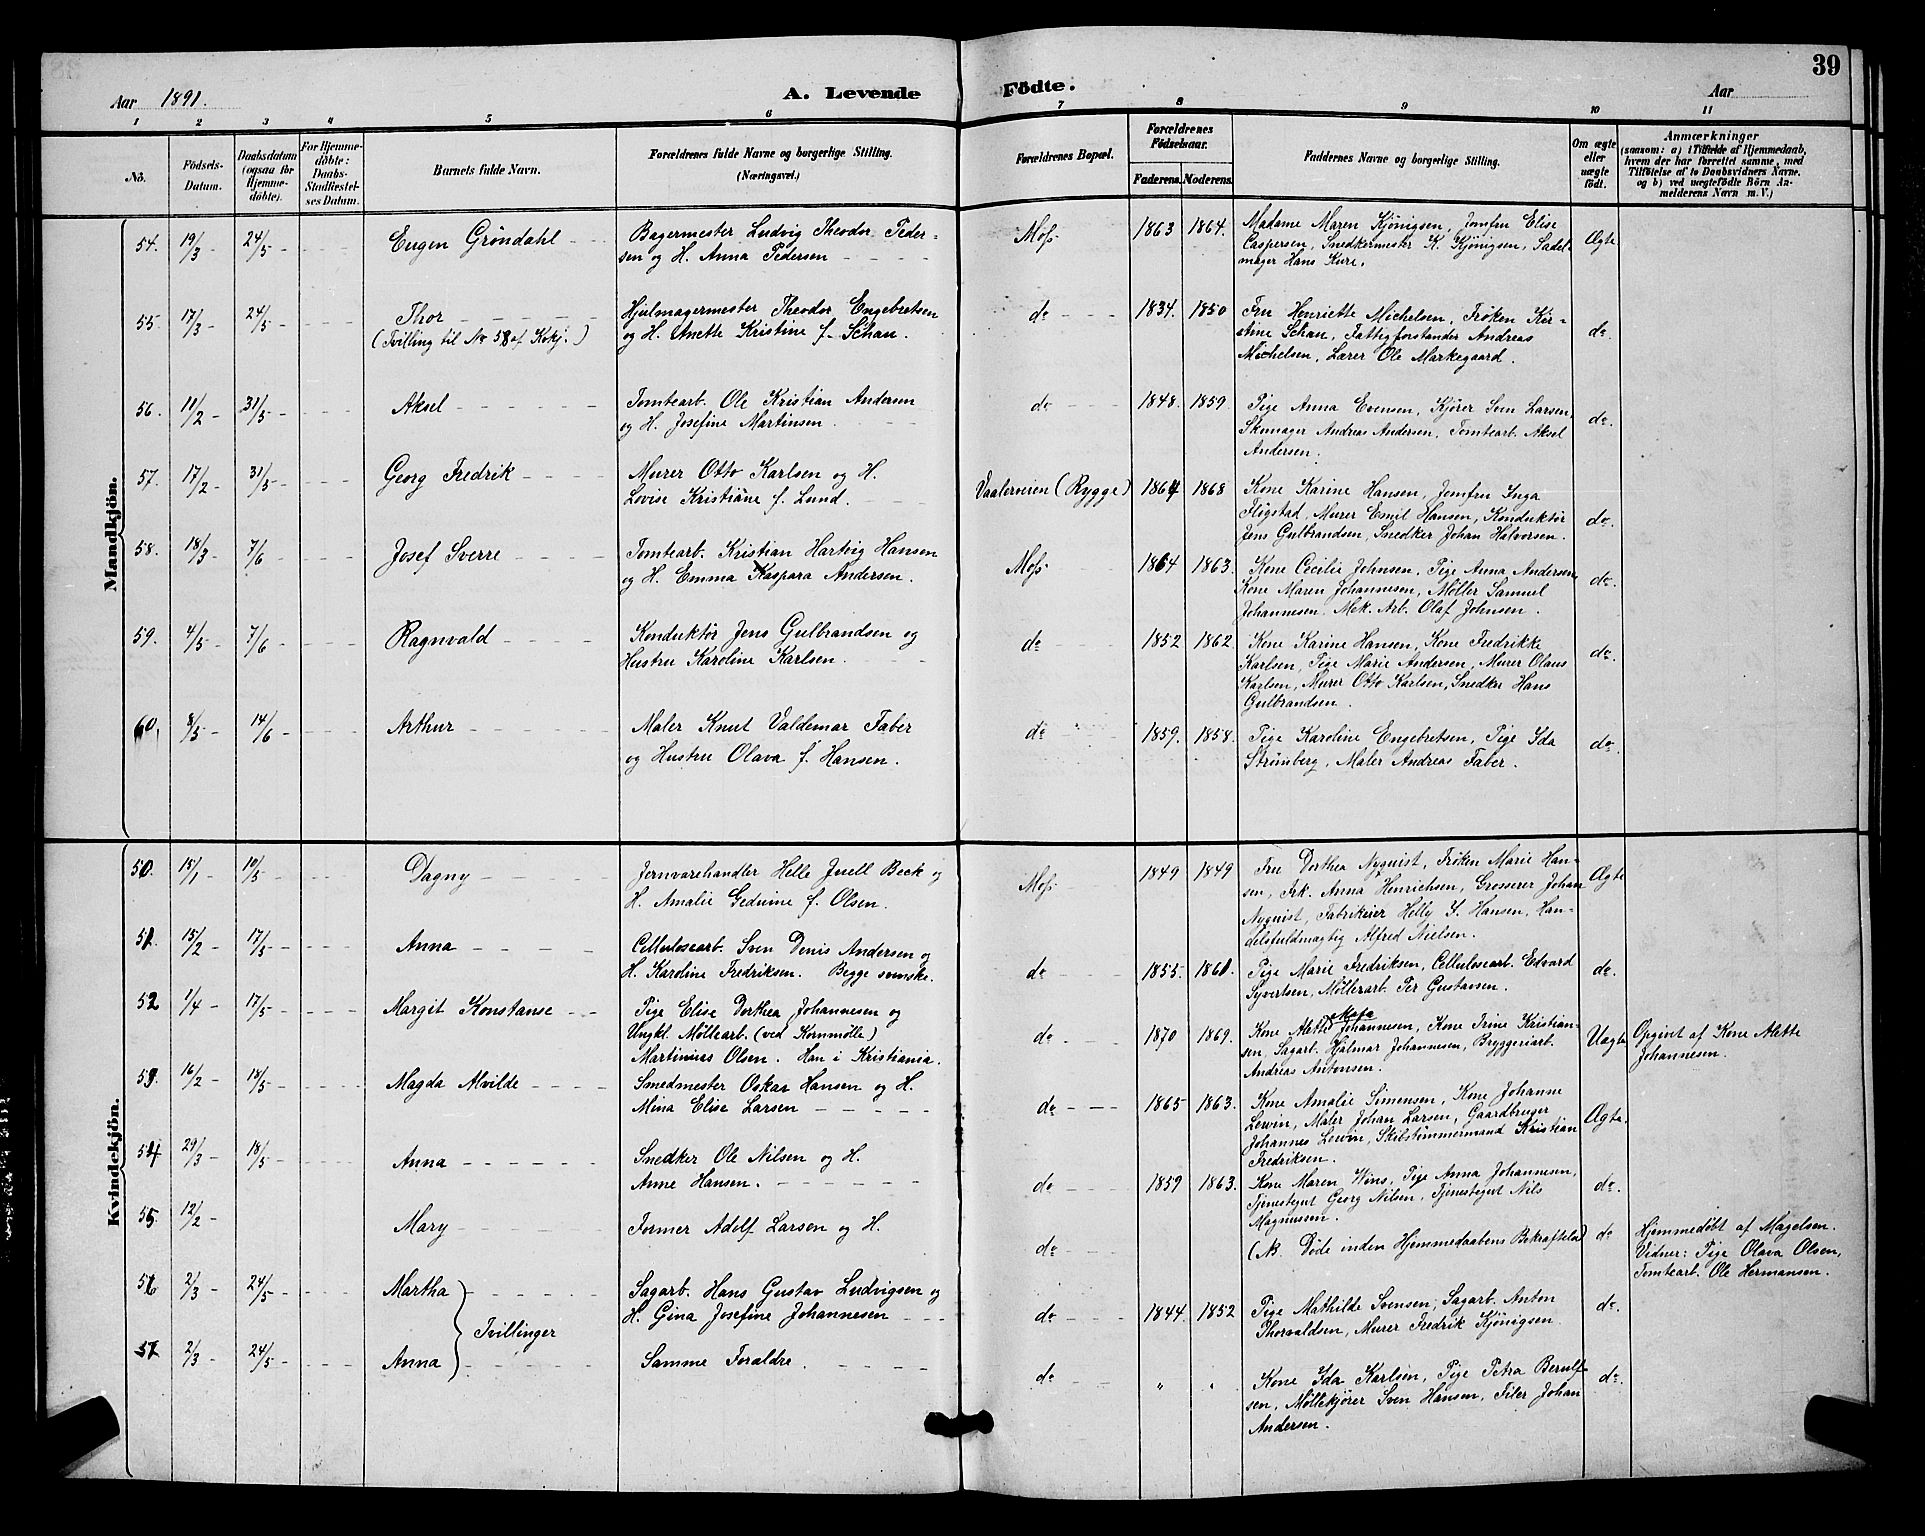 39
Aar 1891.
A. Levende Födte.
Aar
1 2 3 4 5 6 7 8 9 10 11
No.
Födsels-Datum.
Daabsdatum (ogsaa for Hjemme-döbte).
For Hjemme-döbte: Daabs-Stadfæstel-ses Datum.
Barnets fulde Navn.
Forældrenes fulde Navne og borgerlige Stilling.
(Næringsvei.)
Forældrenes Bopæl.
Forældrenes Födselsaar.
Faderens. Moderens.
Faddernes Navne og borgerlige Stilling.
Om ægte eller uægte födt.
Anmærkninger
(saasom: a) i Tilfælde af Hjemmedaab, hvem der har forrettet samme, med Tilföielse af to Daabsvidners Navne, og b) ved uægtefödte Börn An-melderens Navn m. V.)
Mandkjön.
54. 19/3 24/5 Eugen Gröndahl Bagermester Ludvig Theodor Peder-
sen og H. Anna Pedersen
Moss 1863 1864. Madame Maren Kjönigsen, Jomfru Elise
Caspersen, Snedkermester K. Kjönigsen, Sadel-
mager Hans Kure. Ægte
55. 17/3 24/5 Thor
(Tvilling til No 58 af Kvkj.)
Hjulmagermester Theodor Engebretsen
og H. Anette Kristine f. Schau.
do 1834. 1850 Fru Henriette Michelsen, Frøken Kir-
stine Schau, Fattigforstander Andreas
Michelsen, Lærer Ole Markegaard. do.
56. 11/2 31/5 Aksel Tomtearb. Ole Kristian Andersen
og H. Josefine Martinsen.
do 1848. 1859. Pige Anna Evensen, Kjører Sven Larsen,
Skomager Andreas Andersen, Tomtearb. Aksel
Andersen. do.
57. 17/2 31/5 Georg Fredrik Murer Otto Karlsen og H.
Lovise Kristiane f. Lund.
Vaalerveien (Rygge) 1864 1868 Kone Karine Hansen, Jomfru Inga
Fløgstad, Murer Emil Hansen, Konduktør
Jens Gulbrandsen, Snedker Johan Halvorsen. do.
58. 18/3 7/6 Josef Sverre Tomtearb. Kristian Hartvig Hansen
og H. Emma Kaspara Andersen.
Moss 1864 1863. Kone Cecilie Johnsen, Pige Anna Andersen,
Kone Maren Johannesen, Møller Samuel
Johannesen, Mek. Arb. Olaf Johnsen. do.
59. 4/5 7/6 Ragnvald Konduktør Jens Gulbrandsen og
Hustru Karoline Karlsen.
do 1852 1862. Kone Karine Hansen, Kone Fredrikke
Karlsen, Pige Marie Andersen, Murer Olaus
Karlsen, Murer Otto Karlsen, Snedker Hans
Gulbrandsen. do.
60, 8/5 14/6 Arthur Maler Knut Valdemar Faber
og Hustru Olava f. Hansen.
do 1859. 1858. Pige Karoline Engebretsen, Pige Ida
Strømberg, Maler Andreas Faber. do.
Kvindekjön.
50. 15/1 10/5 Dagny Jernvarehandler Helle Juell Beck og
H. Amalie Gedvine f. Olsen.
Moss 1849 1849 Fru Dorthea Nyquist, Frøken Marie Han-
sen, Frk. Anna Henrichsen, Grosserer Johan
Nyquist, Fabrikeier Helly J. Hansen, Han-
delsfuldmægtig Alfred Nielsen. Ægte
51. 15/2 17/5 Anna Cellulosearb. Sven Denis Andersen og
H. Karoline Fredriksen. Begge svenske.
do 1855. 1861. Pige Marie Fredriksen, Cellulosearb. Edvard
Syvertsen, Møllerarb. Per Gustavsen. do.
52 1/4 17/5 Margit Konstanse Pige Elise Dorthea Johannesen og
Ungkl. Møllearb. (ved Kornmølle)
Martinius Olsen. Han i Kristiania.
do 1870 1869. Kone Alette Johannesen, Kone Trine Kristian-
sen, Sagarb. Hjalmar Johannesen, Bryggeriarb.
Andreas Antonsen. Uægte Opgivt af Kone Alette
Johannesen.
53. 16/2 18/5 Magda Alvilde Smedmester Oskar Hansen og H.
Mina Elise Larsen
do 1865 1863. Kone Amalie Simensen, Kone Johanne
Lewin, Maler Johan Larsen, Gaardbruger
Johannes Lewin, Skibstimmermand Kristian
Fredriksen. Ægte.
54 29/3 18/5 Anna Snedker Ole Nilsen og H.
Anne Hansen.
do 1859 1863. Kone Maren Wins, Pige Anna Johannesen,
Tjenestegut Georg Nilsen, Tjenestegut Nils
Magnussen. do.
55. 12/2 Mary Former Adolf Larsen og H.
do (NB. Døde inden Hjemmedaabens Bekræftelse) do Hjemmedøbt af Magelsen.
Vidner: Pige Olava Olsen,
Tomtearb. Ole Hermansen.
56 2/3 24/5 Martha Sagarb. Hans Gustav Ludvigsen og
H. Gina Josefine Johannesen
do 1844 1852 Pige Mathilde Svensen, Sagarb. Anton
Thorvaldsen, Murer Fredrik Kjönigsen. do.
Tvillinger
57 2/3 24/5 Anna Samme Foreldre.
do " " Kone Ida Karlsen, Pige Petra Berulf-
sen, Møllekjører Sven Hansen, Filer Johan
Andersen. do.